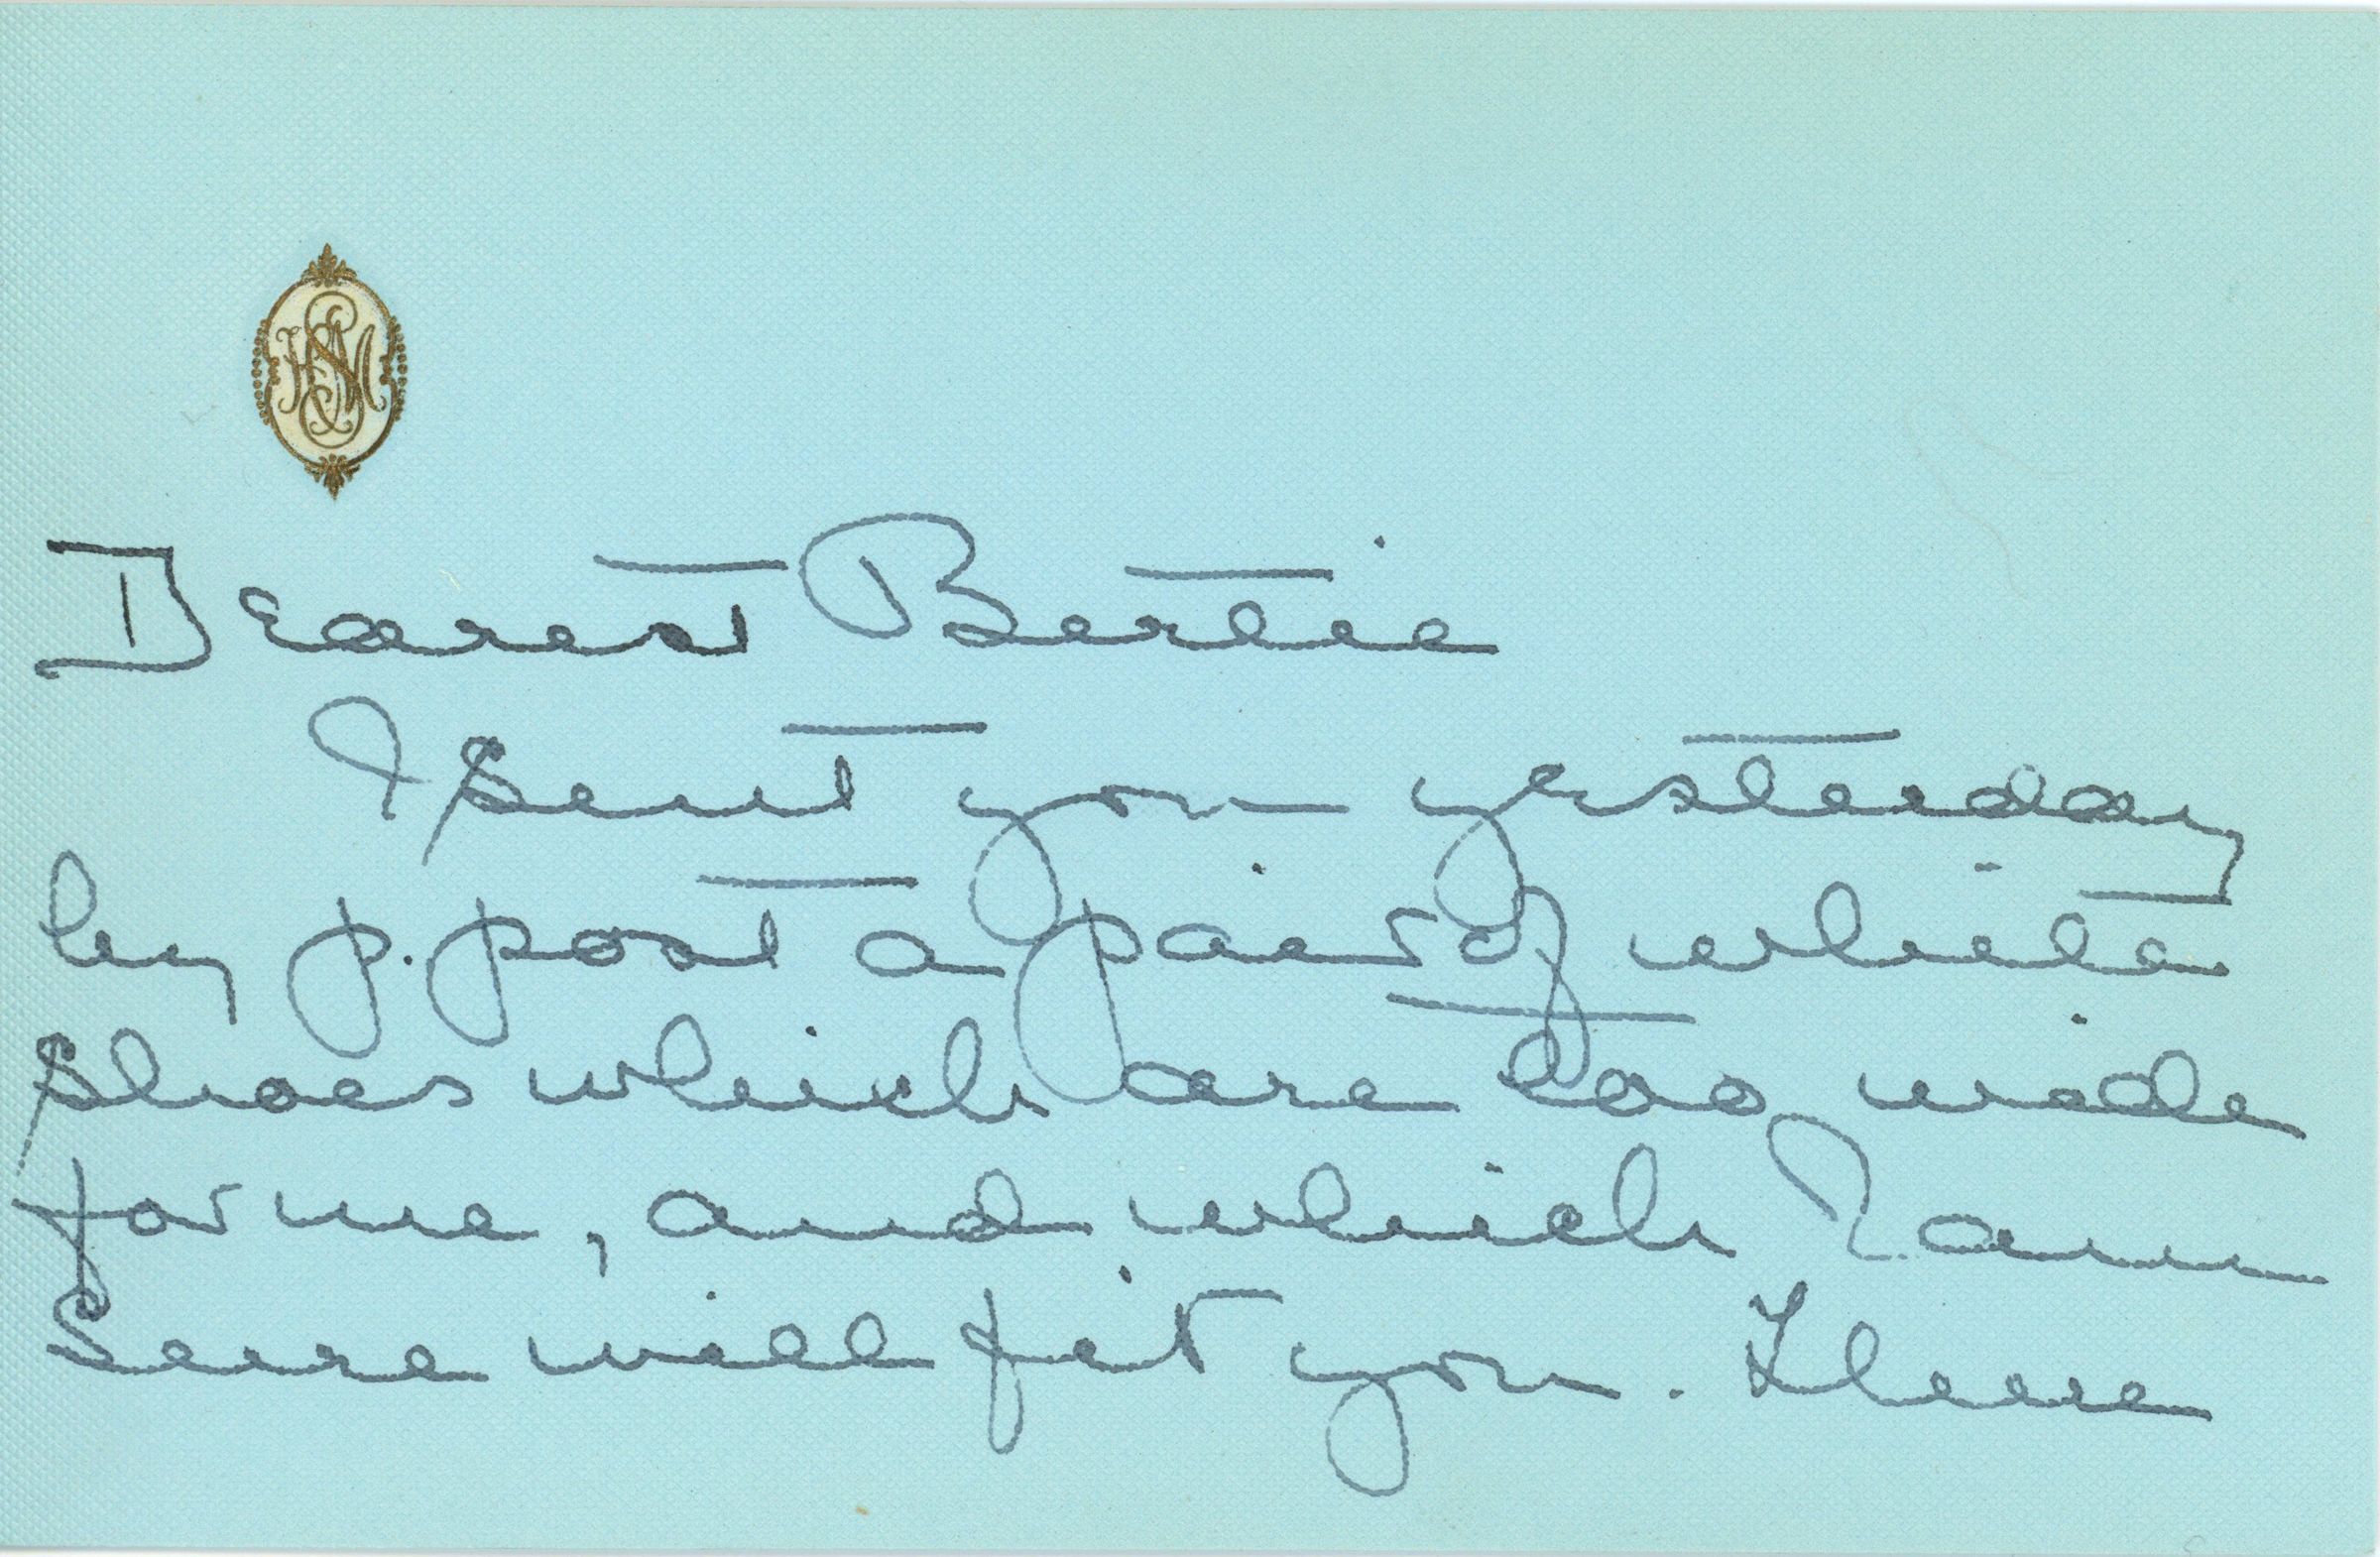 Dearest Bertie
I sent you yesterday
by p. post a pair of white
shoes which are too wide
for me, and which I am
sure will fit you.